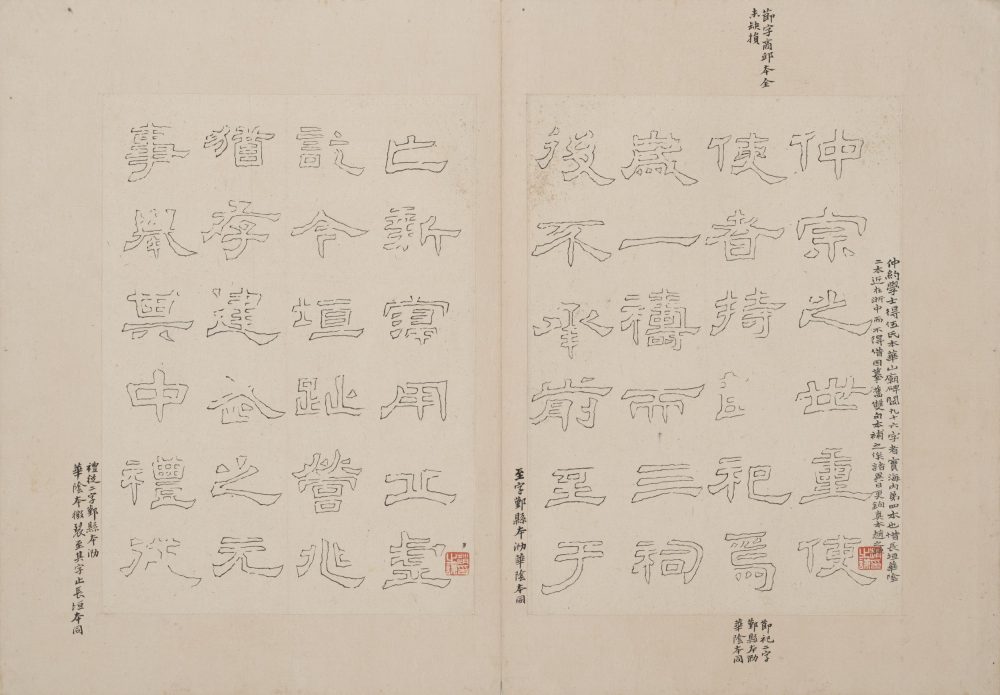 節字商邱本全
未缺損
仲約學士得伍氏本華山廟碑闕九十六字者實海內第四本也惜長垣華陰
二本近在浙中而不得借因摹舊雙勾本補之俟諸異日更勘真本趙之謙
仲宗之世重使
使者持節祀焉
歲一禱而三祠
後不承前至于
節祀二字
鄞縣本泐
華陰本同
至字鄞縣本泐華陰本同
亡新寖用丘虛
訖今垣趾營兆
猶存建武之元
事舉其中禮從
禮從二字鄞縣本泐
華陰本微裂至其字止長垣本同